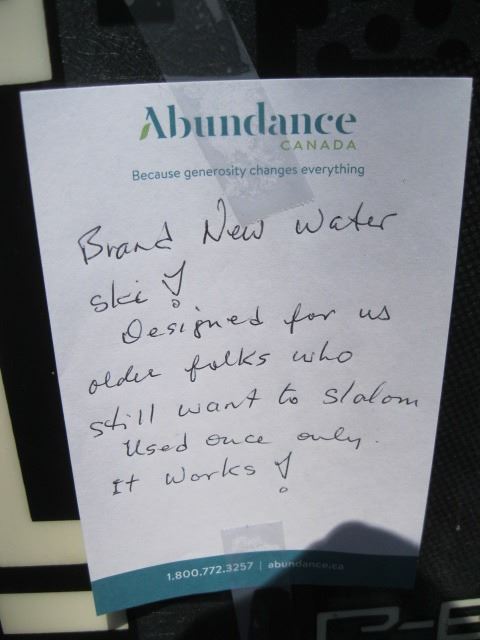 Abundance
CANADA
Because generosity changes everything
Brand New water
ski!
Designed for us
older folks who
still want to slalom
Used once only.
It works!
1.800.772.3257 | abundance.ca